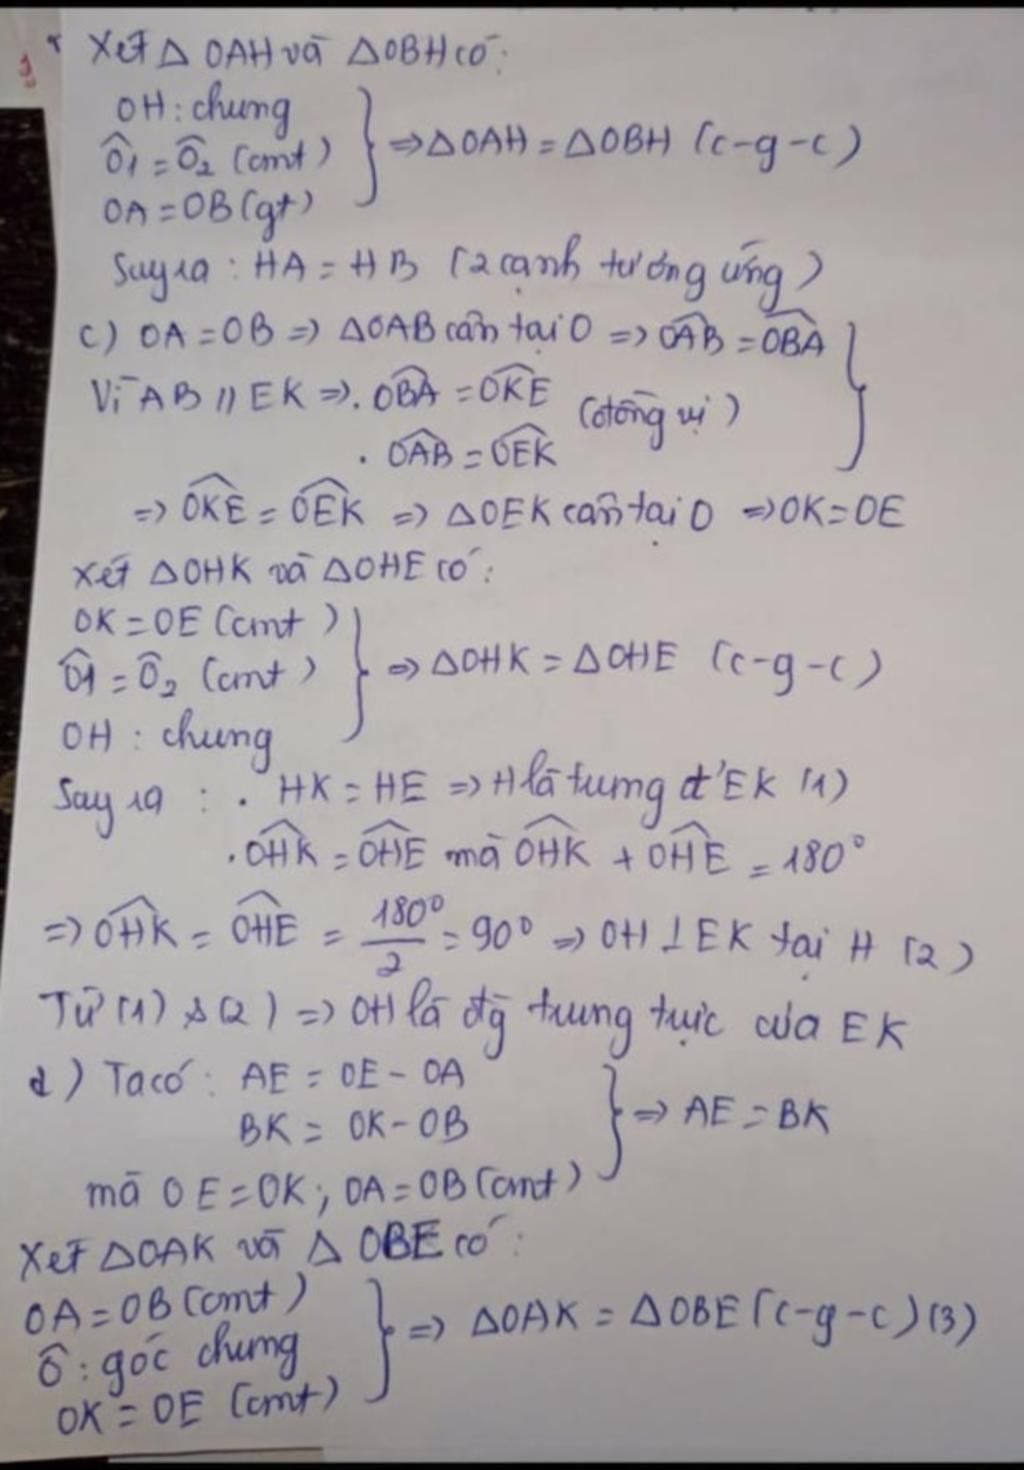 Xét Δ OAH và ΔOBH có:
OH: chung
Ô1 = Ô2 (cmt)
OA = OB (gt)
} ⇒ ΔOAH = ΔOBH (c-g-c)
Suy ra : HA = HB (2 cạnh tương ứng)
c) OA = OB ⇒ ΔOAB cân tại O ⇒ \widehat{OAB} = \widehat{OBA}
Vì AB // EK ⇒ . \widehat{OBA} = \widehat{OKE} (đồng vị)
. \widehat{OAB} = \widehat{OEK}
⇒ \widehat{OKE} = \widehat{OEK} ⇒ ΔOEK cân tại O ⇒ OK = OE
Xét ΔOHK và ΔOHE có:
OK = OE (cmt)
Ô1 = Ô2 (cmt)
OH : chung
} ⇒ ΔOHK = ΔOHE (c-g-c)
Suy ra : . HK = HE ⇒ H là trung đ' EK (1)
. \widehat{OHK} = \widehat{OHE} mà \widehat{OHK} + \widehat{OHE} = 180°
⇒ \widehat{OHK} = \widehat{OHE} = 180°/2 = 90° ⇒ OH ⊥ EK tại H (2)
Từ (1) & (2) ⇒ OH là đg trung trực của EK
d) Ta có : AE = OE - OA
BK = OK - OB
mà OE = OK ; OA = OB (cmt)
} ⇒ AE = BK
Xét ΔOAK và Δ OBE có :
OA = OB (cmt)
Ô : góc chung
OK = OE (cmt)
} ⇒ ΔOAK = ΔOBE (c-g-c) (3)